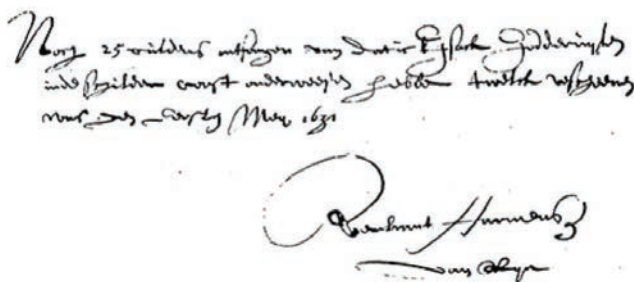 Noch 25 guldens ontfangen van dat ick Isack
inde schilder const onderweesen hebbe twelck verscheenen
was den eersten May 1631
Rembrant Harmensz
van Rijn